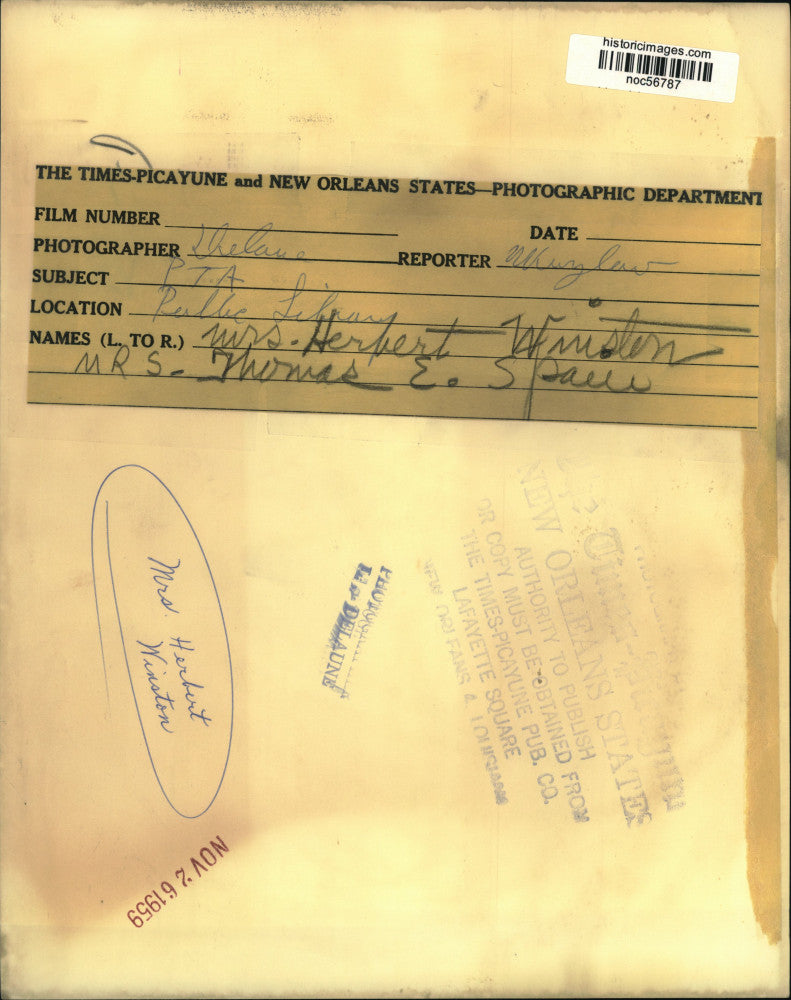 historicimages.com
noc56787
THE TIMES-PICAYUNE and NEW ORLEANS STATES—PHOTOGRAPHIC DEPARTMENT
FILM NUMBER
DATE
PHOTOGRAPHER Delaune
REPORTER
SUBJECT PTA
LOCATION Public Library
NAMES (L. TO R.) Mrs. Herbert Winston
MRS. Thomas E.
Mrs. Herbert
Winston
DELAUNE
NEW ORLEANS STATES
AUTHORITY TO PUBLISH
OR COPY MUST BE OBTAINED FROM
THE TIMES-PICAYUNE PUB. CO.
LAFAYETTE SQUARE
NEW ORLEANS, LOUISIANA
NOV 26 1959